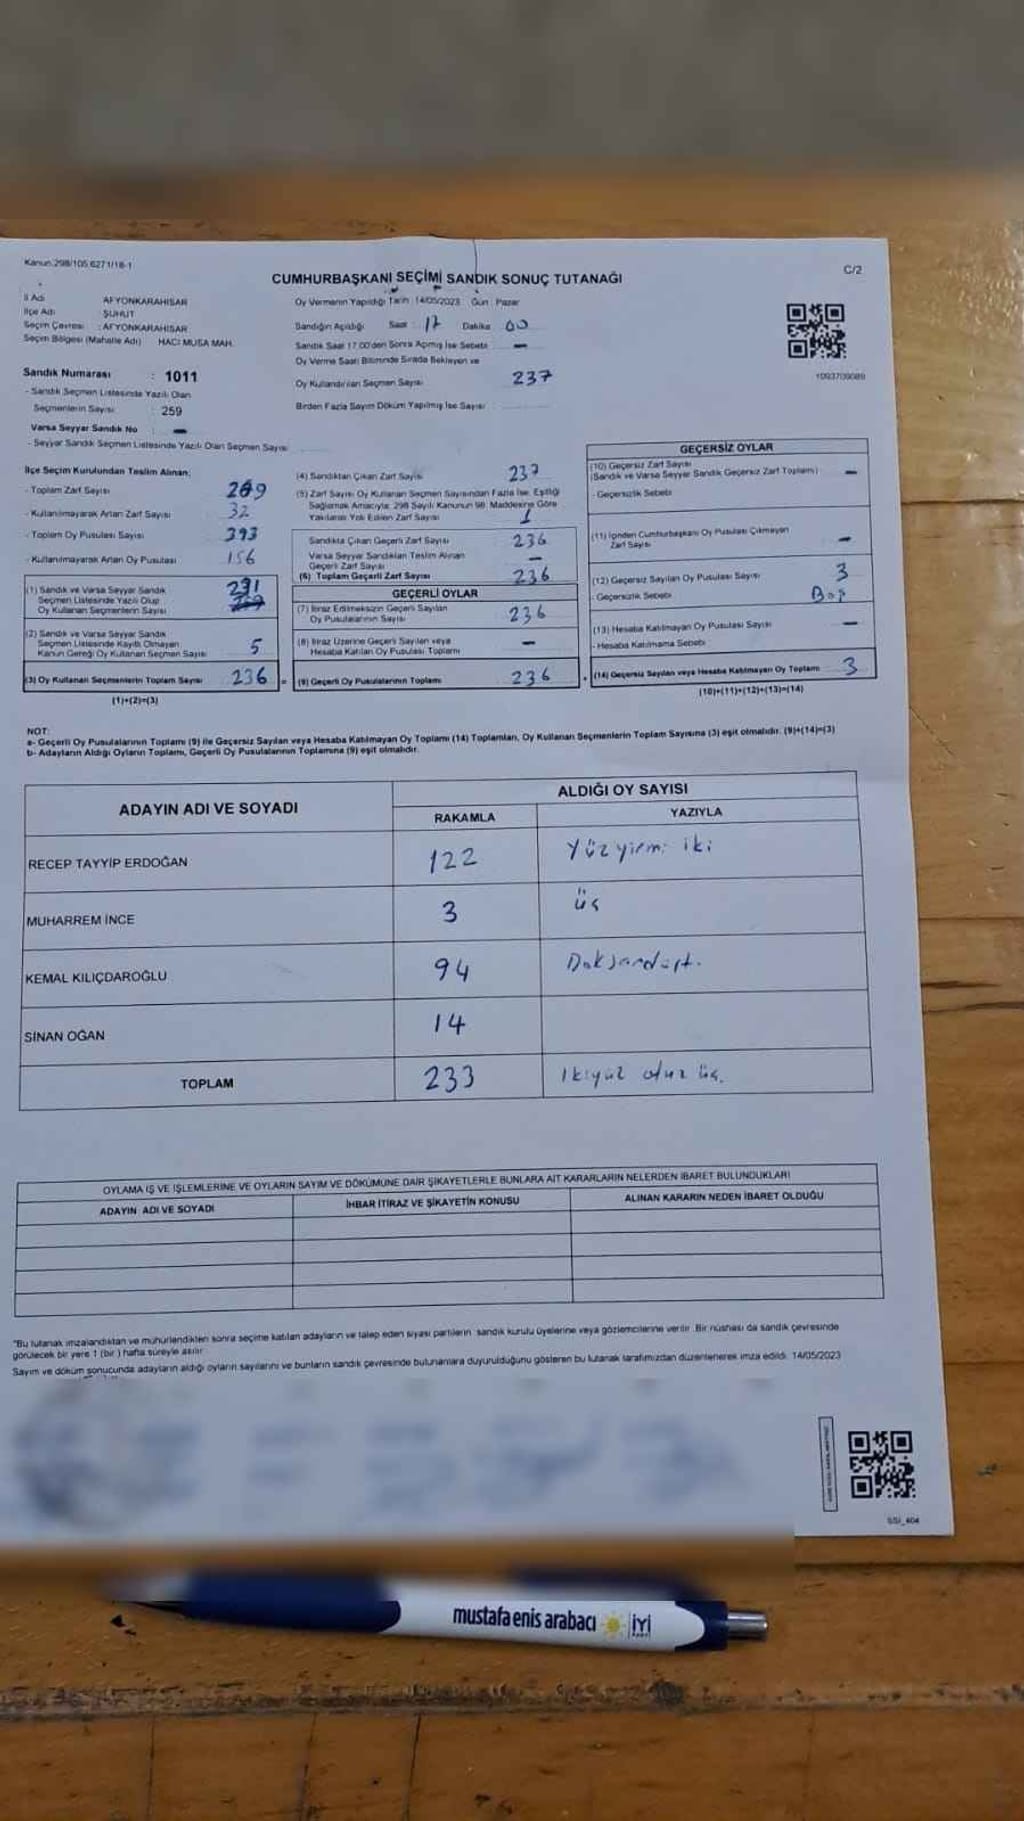 Kanun.298/105.6271/18-1
CUMHURBAŞKANI SEÇİMİ SANDIK SONUÇ TUTANAĞI
C/2
İl Adı : AFYONKARAHİSAR
İlçe Adı : ŞUHUT
Seçim Çevresi : AFYONKARAHİSAR
Seçim Bölgesi (Mahalle Adı) HACI MUSA MAH.
Sandık Numarası : 1011
- Sandık Seçmen Listesinde Yazılı Olan
Seçmenlerin Sayısı : 259
Varsa Seyyar Sandık No —
- Seyyar Sandık Seçmen Listesinde Yazılı Olan Seçmen Sayısı
Oy Vermenin Yapıldığı Tarih : 14/05/2023 Gün : Pazar
Sandığın Açıldığı Saat : 17 Dakika 00
Sandık Saat 17.00'den Sonra Açmış İse Sebebi : —
Oy Verme Saati Bitiminde Sırada Bekleyen ve
Oy Kullandırılan Seçmen Sayısı 237
Birden Fazla Sayım Döküm Yapılmış İse Sayısı
1093709089
İlçe Seçim Kurulundan Teslim Alınan;
- Toplam Zarf Sayısı 269
- Kullanılmayarak Artan Zarf Sayısı 32
- Toplam Oy Pusulası Sayısı 393
- Kullanılmayarak Artan Oy Pusulası 156
(1) Sandık ve Varsa Seyyar Sandık
Seçmen Listesinde Yazılı Olup
Oy Kullanan Seçmenlerin Sayısı 231
(2) Sandık ve Varsa Seyyar Sandık
Seçmen Listesinde Kayıtlı Olmayan
Kanun Gereği Oy Kullanan Seçmen Sayısı 5
(3) Oy Kullanan Seçmenlerin Toplam Sayısı 236 =
(1)+(2)=(3)
(4) Sandıktan Çıkan Zarf Sayısı 237
(5) Zarf Sayısı Oy Kullanan Seçmen Sayısından Fazla İse, Eşitliği
Sağlamak Amacıyla; 298 Sayılı Kanunun 98. Maddesine Göre
Yakılarak Yok Edilen Zarf Sayısı 1
Sandıkta Çıkan Geçerli Zarf Sayısı 236
Varsa Seyyar Sandıktan Teslim Alınan
Geçerli Zarf Sayısı —
(6) Toplam Geçerli Zarf Sayısı 236
GEÇERLİ OYLAR
(7) İtiraz Edilmeksizin Geçerli Sayılan
Oy Pusulalarının Sayısı 236
(8) İtiraz Üzerine Geçerli Sayılan veya
Hesaba Katılan Oy Pusulası Toplamı —
(9) Geçerli Oy Pusulalarının Toplamı 236 +
GEÇERSİZ OYLAR
(10) Geçersiz Zarf Sayısı
(Sandık ve Varsa Seyyar Sandık Geçersiz Zarf Toplamı) —
- Geçersizlik Sebebi
(11) İçinden Cumhurbaşkanı Oy Pusulası Çıkmayan
Zarf Sayısı —
(12) Geçersiz Sayılan Oy Pusulası Sayısı 3
- Geçersizlik Sebebi Boş
(13) Hesaba Katılmayan Oy Pusulası Sayısı —
- Hesaba Katılmama Sebebi
(14) Geçersiz Sayılan veya Hesaba Katılmayan Oy Toplamı 3
(10)+(11)+(12)+(13)=(14)
NOT:
a- Geçerli Oy Pusulalarının Toplamı (9) ile Geçersiz Sayılan veya Hesaba Katılmayan Oy Toplamı (14) Toplamları, Oy Kullanan Seçmenlerin Toplam Sayısına (3) eşit olmalıdır. (9)+(14)=(3)
b- Adayların Aldığı Oyların Toplamı, Geçerli Oy Pusulalarının Toplamına (9) eşit olmalıdır.
ADAYIN ADI VE SOYADI
ALDIĞI OY SAYISI
RAKAMLA YAZIYLA
RECEP TAYYİP ERDOĞAN 122 Yüzyirmi iki
MUHARREM İNCE 3 üç
KEMAL KILIÇDAROĞLU 94 Doksandört.
SİNAN OĞAN 14
TOPLAM 233 İkiyüz otuz üç.
OYLAMA İŞ VE İŞLEMLERİNE VE OYLARIN SAYIM VE DÖKÜMÜNE DAİR ŞİKAYETLERLE BUNLARA AİT KARARLARIN NELERDEN İBARET BULUNDUKLARI
ADAYIN ADI VE SOYADI İHBAR İTİRAZ VE ŞİKAYETİN KONUSU ALINAN KARARIN NEDEN İBARET OLDUĞU
*Bu tutanak imzalandıktan ve mühürlendikten sonra seçime katılan adayların ve talep eden siyasi partilerin sandık kurulu üyelerine veya gözlemcilerine verilir. Bir nüshası da sandık çevresinde
görülecek bir yere 1 (bir) hafta süreyle asılır.
Sayım ve döküm sonucunda adayların aldığı oyların sayılarını ve bunların sandık çevresinde bulunanlara duyurulduğunu gösteren bu tutanak tarafımızdan düzenlenerek imza edildi. 14/05/2023
SSI_404
mustafa enis arabacı İYİ